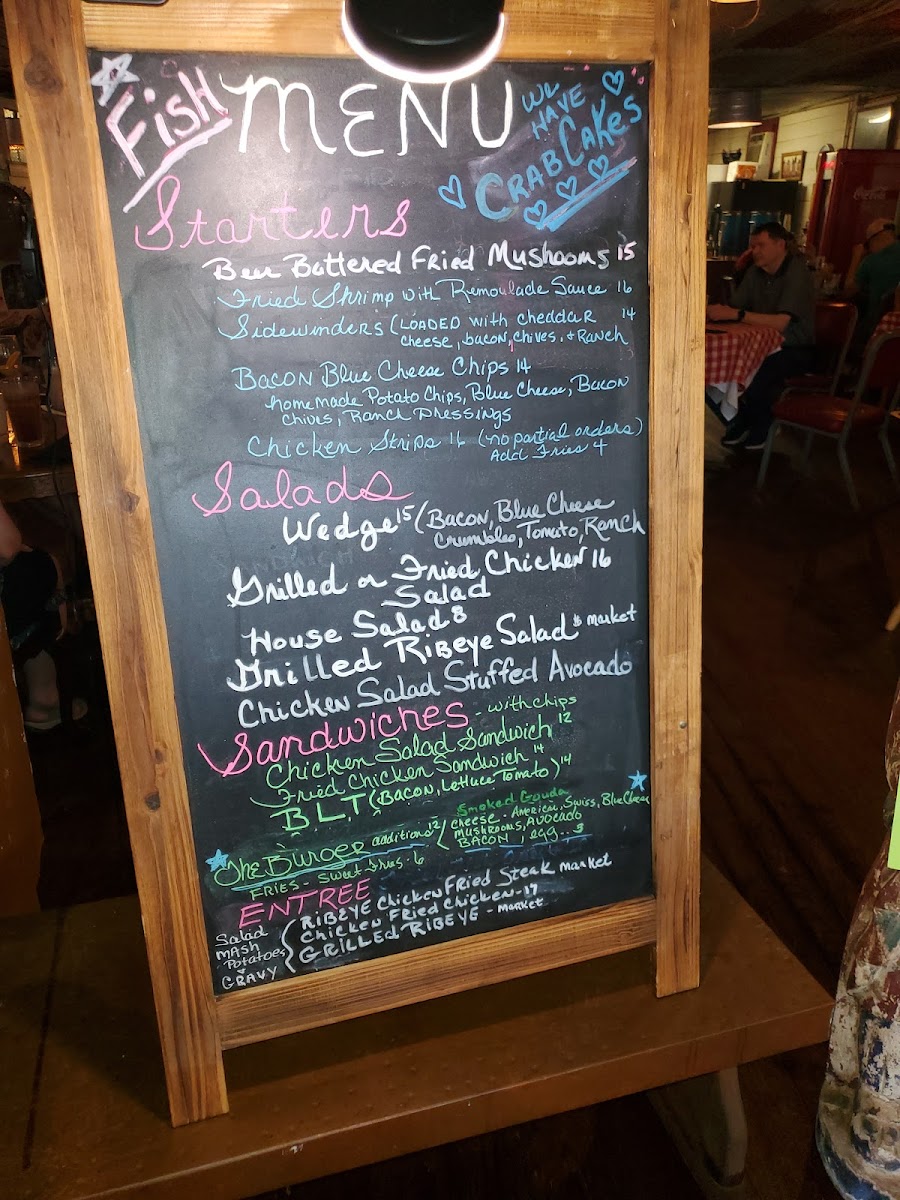 Fish
MENU
WE
HAVE
CRAB CAKES
Starters
Beer Battered Fried Mushooms 15
Fried Shrimp with Remoulade Sauce 16
Sidewinders (LOADED with cheddar 14
cheese, bacon, chives, & Ranch
Bacon Blue Cheese Chips 14
homemade Potato Chips, Blue Cheese, Bacon
chives, Ranch Dressings
Chicken Strips 16 (no partial orders)
Add Fries 4
Salads
Wedge 15 (Bacon, Blue Cheese
Crumbles, Tomato, Ranch
Grilled or Fried Chicken 16
Salad
House Salad 8
Grilled Ribeye Salad $ market
Chicken Salad Stuffed Avocado
Sandwiches - with chips
Chicken Salad Sandwich 12
Fried Chicken Sandwich 14
BLT (Bacon, Lettuce Tomato) 14
Smoked Gouda
The Burger additions 12 (cheese - American, Swiss, Blue Cheese
MUSHROOMS, AVOCADO
BACON, egg..3
FRIES - Sweet Fries. 6
ENTREE
Salad
MASH
Potatoes
GRAVY
RIBEYE Chicken Fried Steak market
Chicken Fried Chicken - 17
GRILLED RIBEYE - market
Coca-Cola